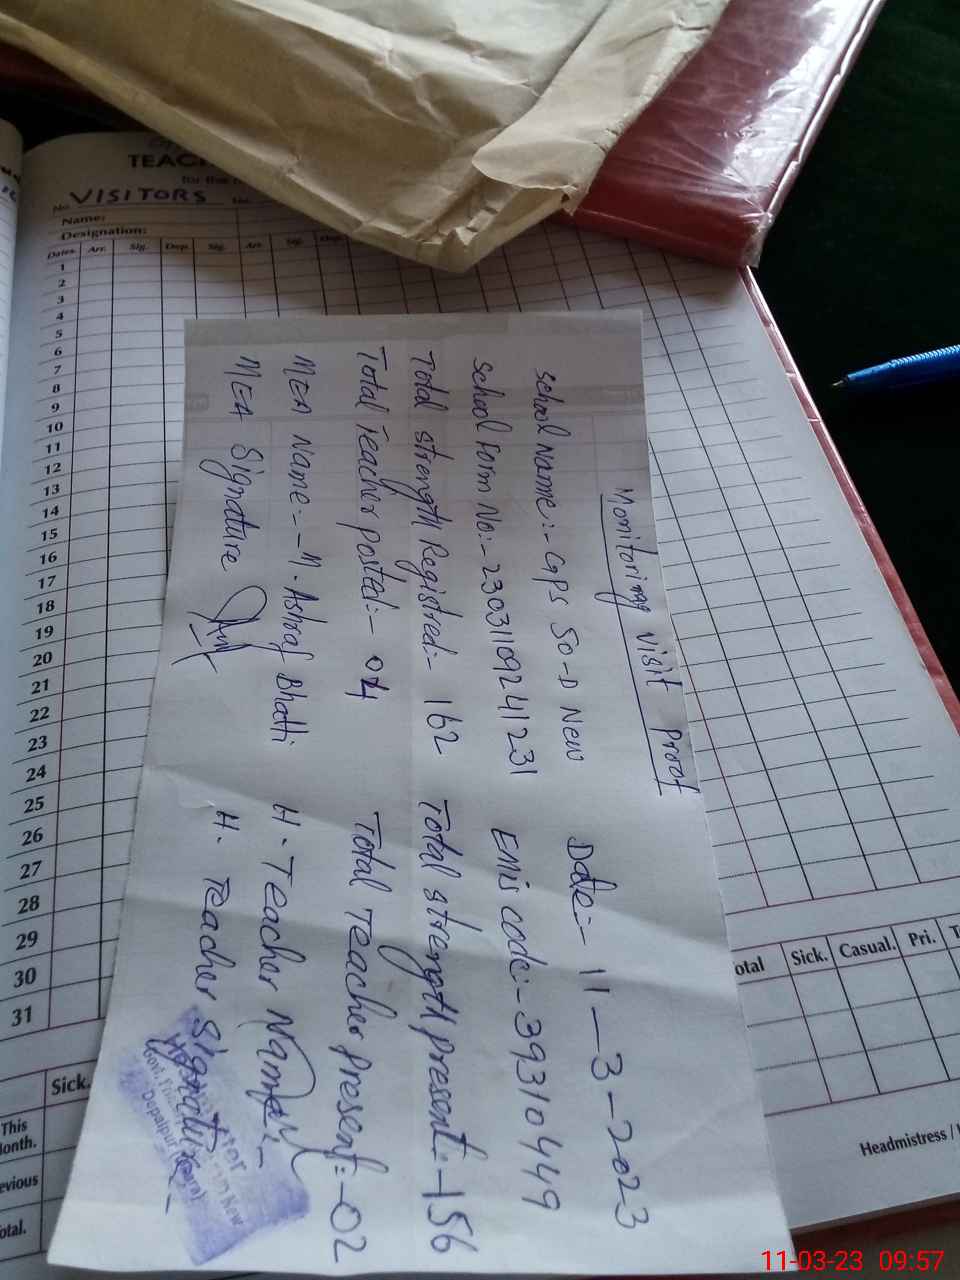 TEAC
for the
No. VISITORS No.
Name:
Designation:
Dates. Arr. Sig. Dep. Sig. Arr. Sig. Dep.
1
2
3
4
5
6
7
8
9
10
11
12
13
14
15
16
17
18
19
20
21
22
23
24
25
26
27
28
29
30
31
Sick.
This
onth.
evious
otal.
Monitoring visit proof
School Name:- GPS 50-D New Date:- 11-3-2023
School Form No:- 23031109241231 Emis code:- 39310449
Total strength Registred:- 162 Total strength present:- 156
Total Teacher posted:- 04 Total Teacher present:- 02
MEA Name:- M. Ashraf Bhatti H. Teacher Name:-
MEA Signature H. Teacher Signature:-
New
Depalpur
otal Sick. Casual. Pri. T
Headmistress /
11-03-23 09:57